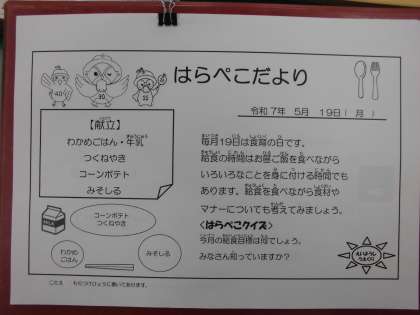 はらぺこだより
令和7年 5月 19日( 月 )
【献立】
わかめごはん・牛乳
つくねやき
コーンポテト
みそしる
毎月19日は食育の日です。
給食の時間はお昼ご飯を食べながら
いろいろなことを身に付ける時間でも
あります。給食を食べながら食材や
マナーについても考えてみましょう。
<はらぺこクイズ>
今月の給食目標は何でしょう。
みなさん知っていますか?
コーンポテト
つくねやき
わかめ
ごはん
みそしる